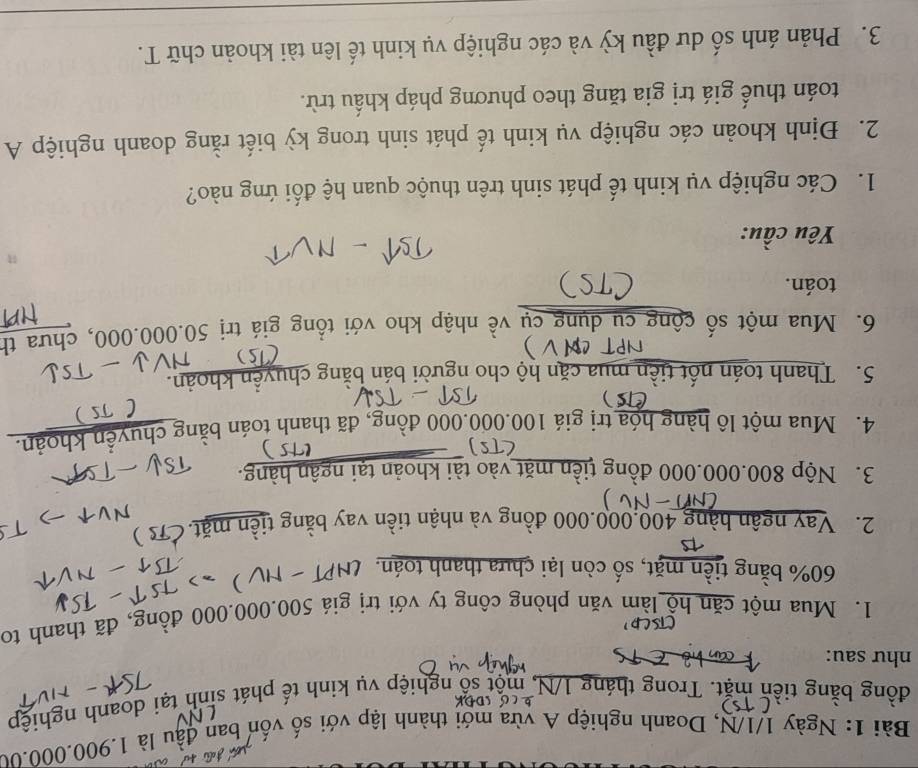 Bài 1: Ngày 1/1/N, Doanh nghiệp A vừa mới thành lập với số vốn ban đầu là 1.900.000.00
(TS) (NV
đồng bằng tiền mặt. Trong tháng 1/N, một số nghiệp vụ kinh tế phát sinh tại doanh nghiệp
nghiệp vụ 0 TS↑ - NV↑
như sau:
(TSCĐ)
1. Mua một căn hộ làm văn phòng công ty với trị giá 500.000.000 đồng, đã thanh to
60% bằng tiền mặt, số còn lại chưa thanh toán. (NPT - NV) => TS↑ - TS↓
TS TS↑ - NV↑
2. Vay ngân hàng 400.000.000 đồng và nhận tiền vay bằng tiền mặt. (TS) NV↑ → TS
(NPT - NV)
3. Nộp 800.000.000 đồng tiền mặt vào tài khoản tại ngân hàng. TS↓ - TS↑
(TS) (TS)
4. Mua một lô hàng hóa trị giá 100.000.000 đồng, đã thanh toán bằng chuyển khoản.
(TS) TS↑ - TS↓ (TS)
5. Thanh toán nốt tiền mua căn hộ cho người bán bằng chuyển khoản.
NPT (NV) (TS) NV↓ - TS↓
6. Mua một số công cụ dụng cụ về nhập kho với tổng giá trị 50.000.000, chưa th
toán. (TS) NPT
TS↑ - NV↑
Yêu cầu:
1. Các nghiệp vụ kinh tế phát sinh trên thuộc quan hệ đối ứng nào?
2. Định khoản các nghiệp vụ kinh tế phát sinh trong kỳ biết rằng doanh nghiệp A
toán thuế giá trị gia tăng theo phương pháp khấu trừ.
3. Phản ánh số dư đầu kỳ và các nghiệp vụ kinh tế lên tài khoản chữ T.